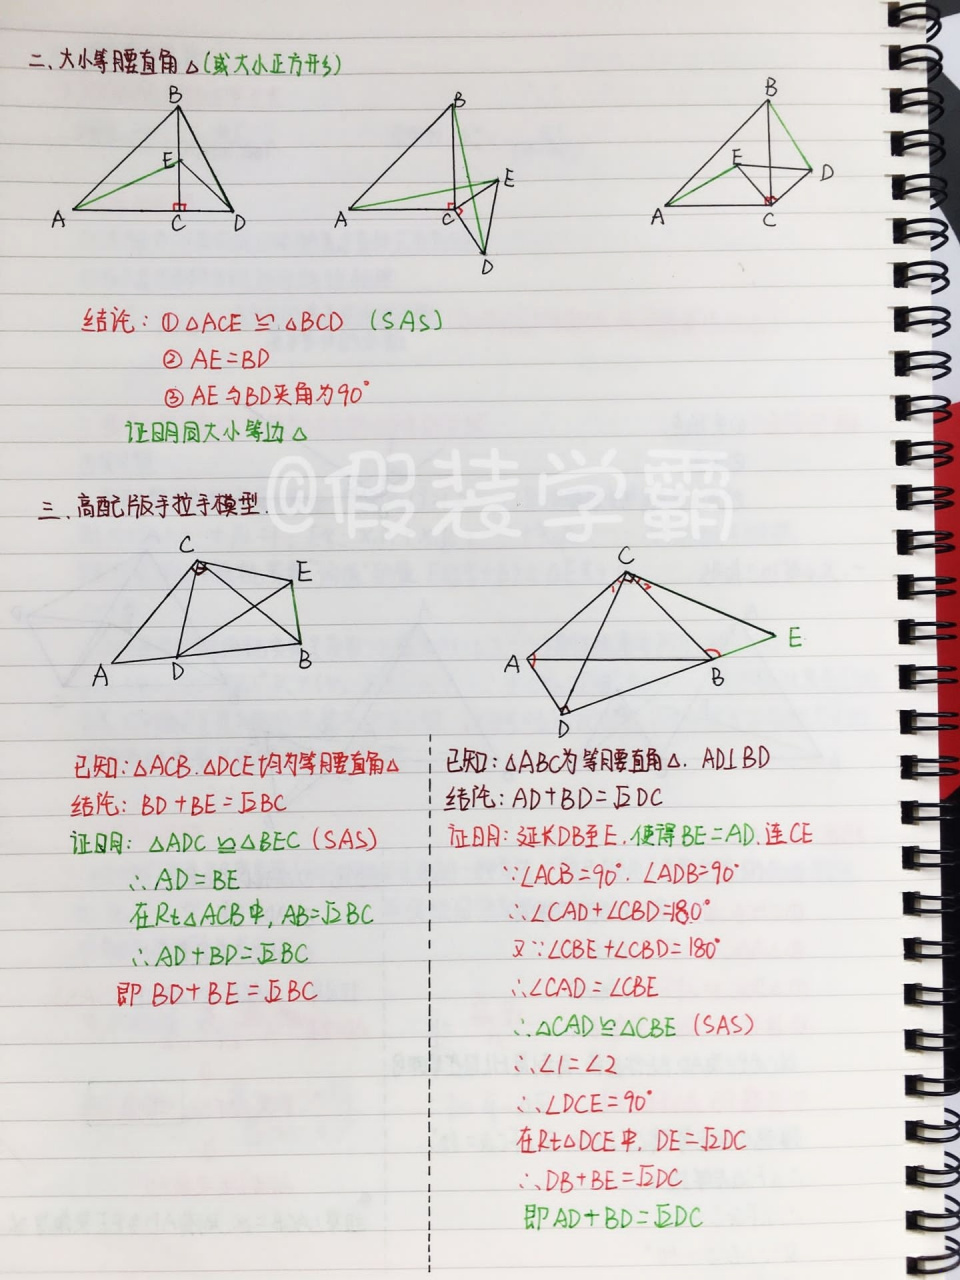 二、大小等腰直角△(或大小正方形)
B
E
A
C
D
B
E
A
C
D
B
E
D
A
C
结论: ①△ACE ≌ △BCD (SAS)
② AE=BD
③ AE与BD夹角为90°
证明同大小等边△
@假装学霸
三、高配版手拉手模型.
C
E
A
D
B
C
1
2
A
B
E
D
已知:△ACB.△DCE均为等腰直角△
结论: BD+BE=√2BC
证明: △ADC≌△BEC (SAS)
∴AD=BE
在Rt△ACB中, AB=√2BC
∴AD+BD=√2BC
即 BD+BE=√2BC
已知:△ABC为等腰直角△. AD⊥BD
结论: AD+BD=√2DC
证明: 延长DB至E,使得BE=AD,连CE
∵∠ACB=90°.∠ADB=90°
∴∠CAD+∠CBD=180°
又∵∠CBE+∠CBD=180°
∴∠CAD=∠CBE
∴△CAD≌△CBE (SAS)
∴∠1=∠2
∴∠DCE=90°
在Rt△DCE中, DE=√2DC
∴DB+BE=√2DC
即AD+BD=√2DC